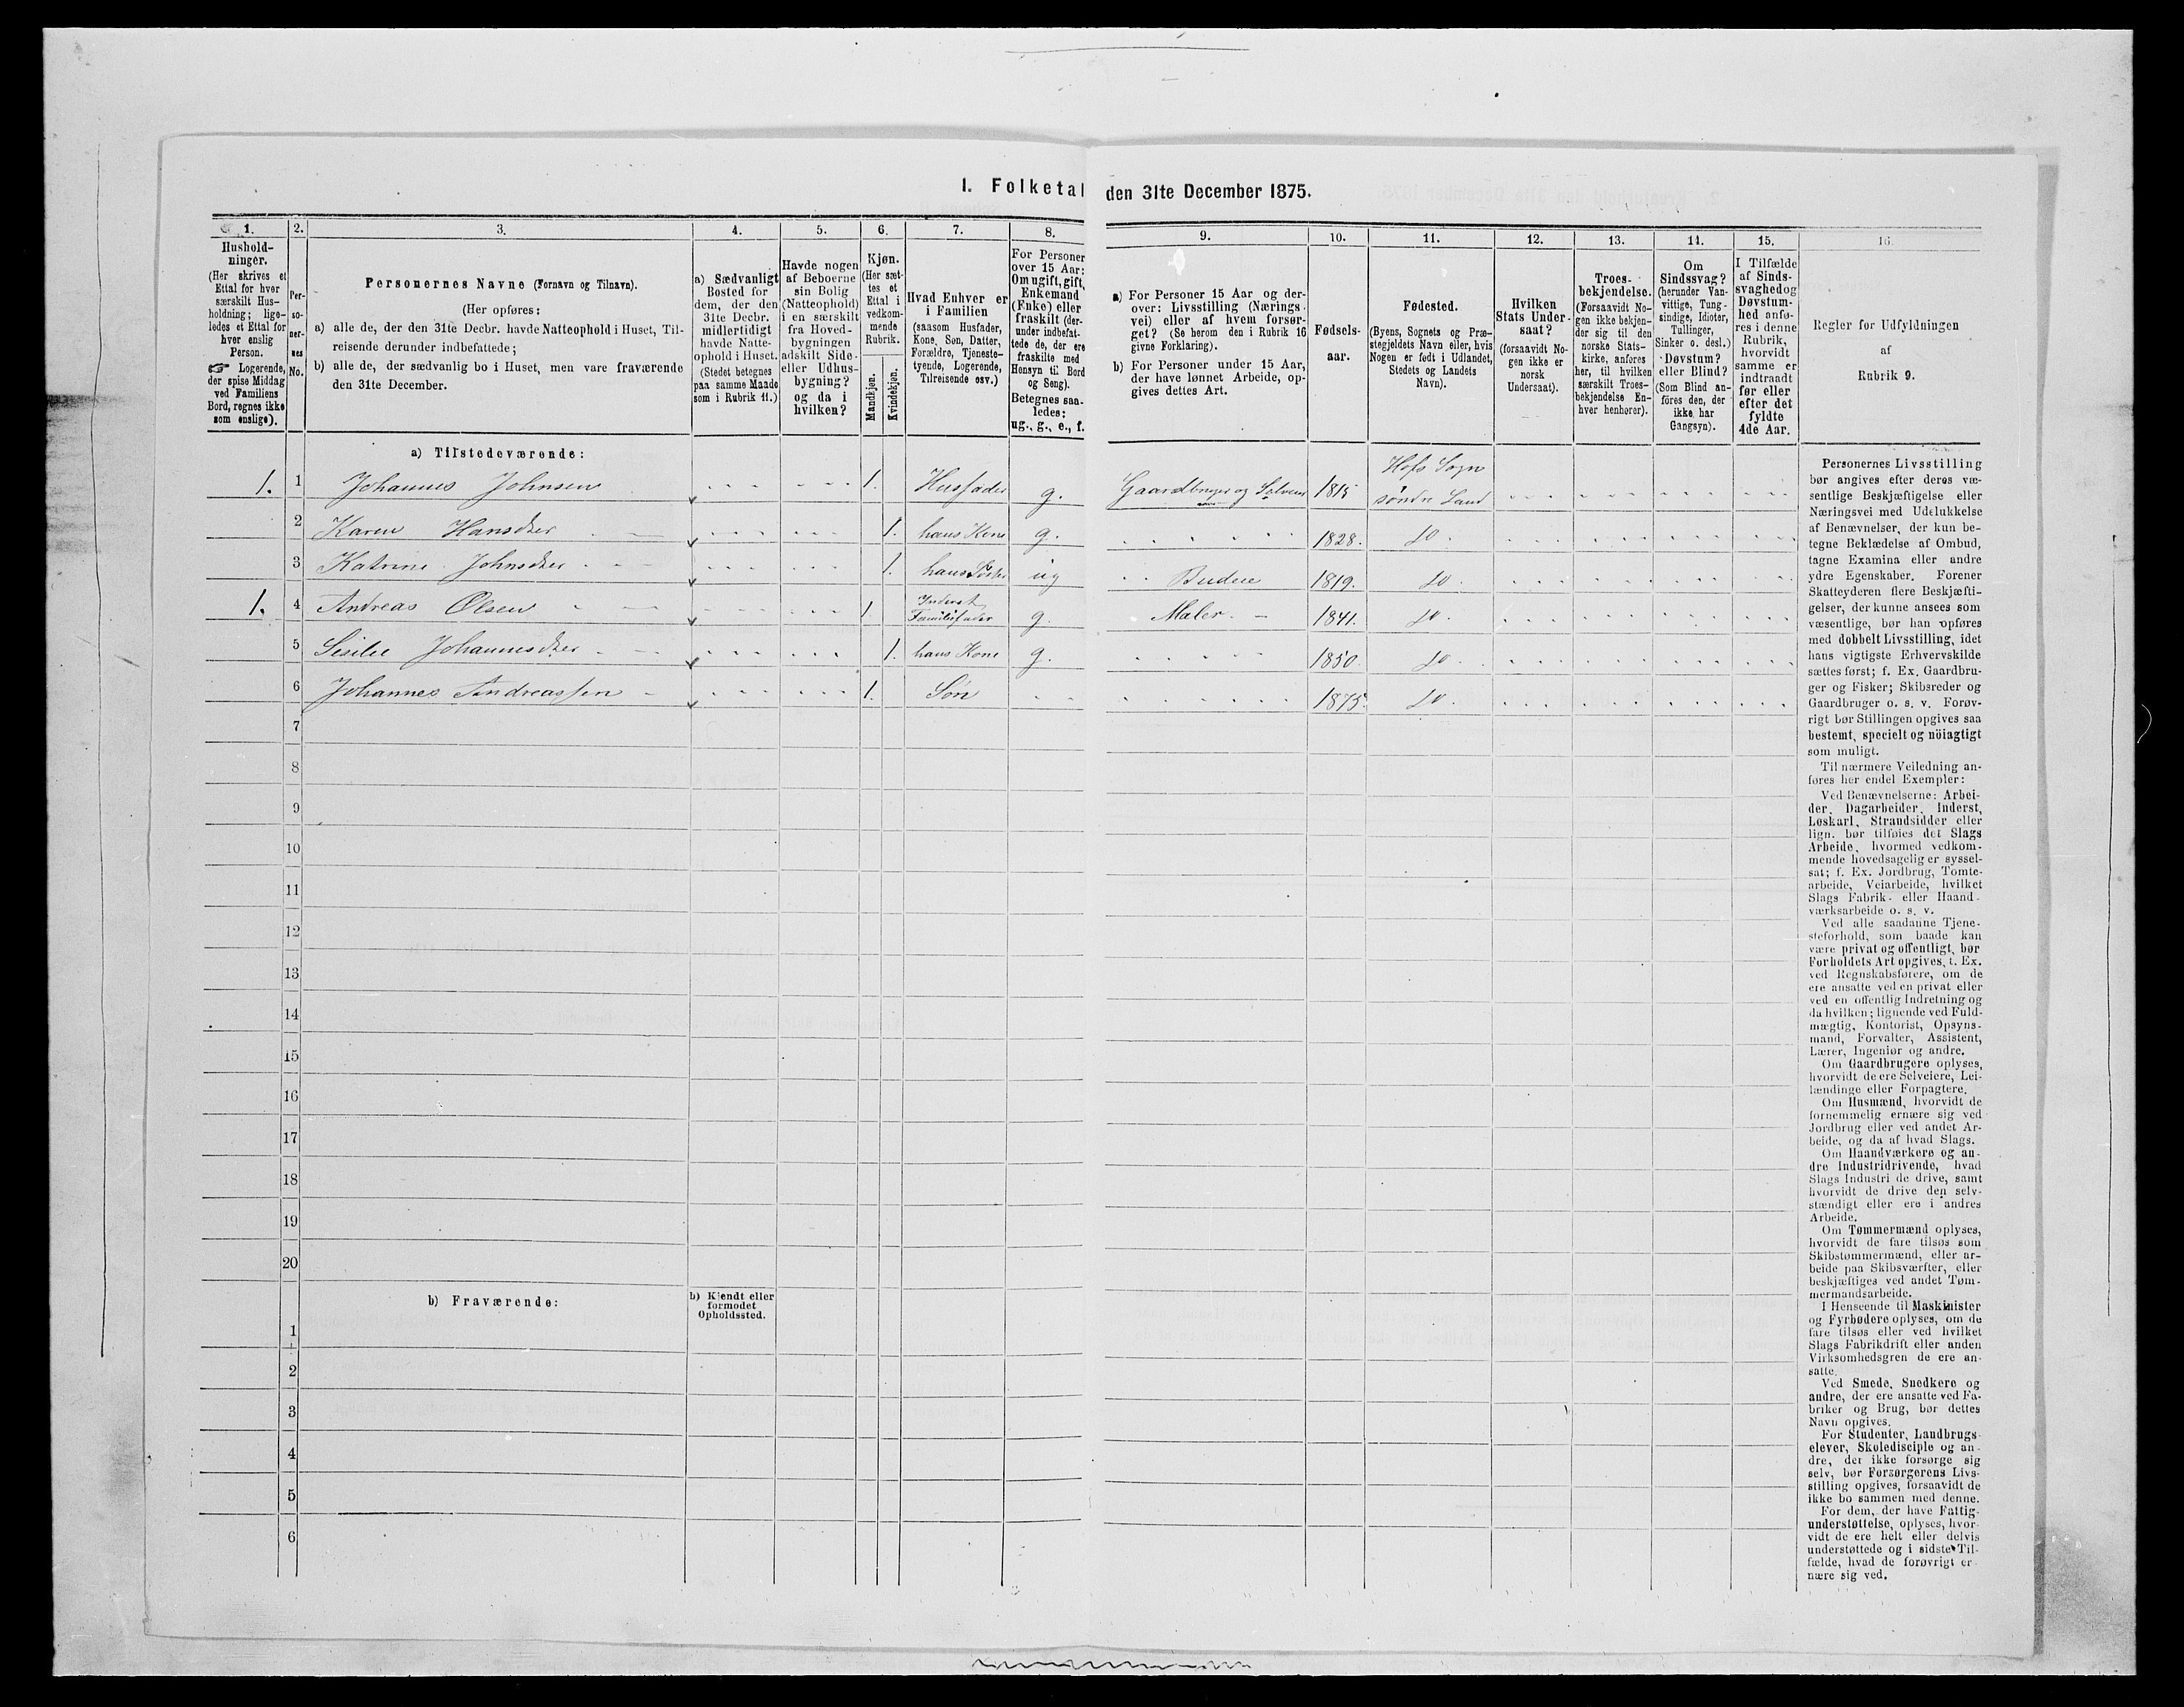 1. Folketal den 31te December 1875.
1. 2. 3. 4. 5. 6. 7. 8. 9. 10. 11. 12. 13. 14. 15. 16.
Hushold-
ninger.
(Her skrives et
Ettal for hver
særskilt Hus-
holdning; lige-
ledes et Ettal for
hver enslig
Person.
☞ Logerende,
der spise Middag
ved Familiens
Bord, regnes ikke
som enslige).
Per-
so-
ner-
nes
No.
Personernes Navne (Fornavn og Tilnavn).
(Her opføres:
a) alle de, der den 31te Decbr. havde Natteophold i Huset, Til-
reisende derunder indbefattede;
b) alle de, der sædvanlig bo i Huset, men vare fraværende
den 31te December.
a) Sædvanligt
Bosted for
dem, der den
31te Decbr.
midlertidigt
havde Natte-
ophold i Huset.
(Stedet betegnes
paa samme Maade
som i Rubrik 11.)
Havde nogen
af Beboerne
sin Bolig
(Natteophold)
i en særskilt
fra Hoved-
bygningen
adskilt Side-
eller Udhus-
bygning?
og da i
hvilken?
Kjøn.
(Her sæt-
tes et
Ettal i
vedkom-
mende
Rubrik.
Mandkjøn.
Kvindekjøn.
Hvad Enhver er
i Familien
(saasom Husfader,
Kone, Søn, Datter,
Forældre, Tjeneste-
tyende, Logerende,
Tilreisende osv.)
For Personer
over 15 Aar:
Om ugift, gift,
Enkemand
(Enke) eller
fraskilt (der-
under indbefat-
tede de, der ere
fraskilte med
Hensyn til Bord
og Seng).
Betegnes saa-
ledes:
ug., g., e., f.
a) For Personer 15 Aar og der-
over: Livsstilling (Nærings-
vei) eller af hvem forsør-
get? (Se herom den i Rubrik 16
givne Forklaring).
b) For Personer under 15 Aar,
der have lønnet Arbeide, op-
gives dettes Art.
Fødsels-
aar.
Fødested.
(Byens, Sognets og Præ-
stegjeldets Navn eller, hvis
Nogen er født i Udlandet,
Stedets og Landets
Navn).
Hvilken
Stats Under-
saat?
(forsaavidt No-
gen ikke er
norsk
Undersaat).
Troes-
bekjendelse.
(Forsaavidt No-
gen ikke bekjen-
der sig til den
norske Stats-
kirke, anføres
her, til hvilken
særskilt Troes-
bekjendelse En-
hver henhører).
Om
Sindssvag?
(herunder Van-
vittige, Tung-
sindige, Idioter,
Tullinger,
Sinker o. desl.)
Døvstum?
eller Blind?
(Som Blind an-
føres den, der
ikke har
Gangsyn).
I Tilfælde
af Sinds-
svaghed og
Døvstum-
hed anfø-
res i denne
Rubrik,
hvorvidt
samme er
indtraadt
før eller
efter det
fyldte
4de Aar.
Regler for Udfyldningen
af
Rubrik 9.
a) Tilstedeværende:
1. 1 Johannes Johnsen 1. Husfader g. Gaardbruger og Selveier 1815 Hofs Sogn
søndre Land
2 Karen Hansdter 1. hans Kone g. 1828. do.
3 Katrine Johnsdter 1. hans Søster ug Budeie 1819. do.
1. 4 Andreas Olsen 1 Inderst
Familiefader g. Maler 1841. do.
5 Sesilie Johannesdter 1. hans Kone g. 1850. do.
6 Johannes Andreassen 1. Søn 1875. do.
7
8
9
10
11
12
13
14
15
16
17
18
19
20
b) Fraværende:
b) Kjendt eller
formodet
Opholdssted.
1
2
3
4
5
6
Personernes Livsstilling
bør angives efter deres væ-
sentlige Beskjæftigelse eller
Næringsvei med Udelukkelse
af Benævnelser, der kun be-
tegne Beklædelse af Ombud,
tagne Examina eller andre
ydre Egenskaber. Forener
Skatteyderen flere Beskjæfti-
gelser, der kunne ansees som
væsentlige, bør han opføres
med dobbelt Livsstilling, idet
hans vigtigste Erhvervskilde
sættes først; f. Ex. Gaardbru-
ger og Fisker; Skibsreder og
Gaardbruger o. s. v. Forøv-
rigt bør Stillingen opgives saa
bestemt, specielt og nöiagtigt
som muligt.
Til nærmere Veiledning an-
føres her endel Exempler:
Ved Benævnelserne: Arbei-
der, Dagarbeider, Inderst,
Løskarl, Strandsidder eller
lign. bør tilføies det Slags
Arbeide, hvormed vedkom-
mende hovedsagelig er syssel-
sat; f. Ex. Jordbrug, Tomte-
arbeide, Veiarbeide, hvilket
Slags Fabrik- eller Haand-
værksarbeide o. s. v.
Ved alle saadanne Tjene-
steforhold, som baade kan
være privat og offentligt, bør
Forholdets Art opgives, t. Ex.
ved Regnskabsførere, om de
ere ansatte ved en privat eller
ved en offentlig Indretning og
da hvilken; lignende ved Fuld-
mægtig, Kontorist, Opsyns-
mand, Forvalter, Assistent,
Lærer, Ingeniør og andre.
Om Gaardbrugere oplyses,
hvorvidt de ere Selveiere, Lei-
lændinge eller Forpagtere.
Om Husmænd, hvorvidt de
fornemmelig ernære sig ved
Jordbrug eller ved andet Ar-
beide, og da af hvad Slags.
Om Haandværkere og an-
dre Industridrivende, hvad
Slags Industri de drive, samt
hvorvidt de drive den selv-
stændigt eller ere i andres
Arbeide.
Om Tømmermænd oplyses,
hvorvidt de fare tilsøs som
Skibstømmermænd, eller ar-
beide paa Skibsværfter, eller
beskjæftiges ved andet Tøm-
mermandsarbeide.
I Henseende til Maskinister
og Fyrbødere oplyses, om de
fare tilsøs eller ved hvilket
Slags Fabrikdrift eller anden
Virksomhedsgren de ere an-
satte.
Ved Smede, Snedkere og
andre, der ere ansatte ved Fa-
briker og Brug, bør dettes
Navn opgives.
For Studenter, Landbrugs-
elever, Skoledisciple og an-
dre, der ikke forsørge sig
selv, bør Forsørgerens Livs-
stilling opgives, forsaavidt de
ikke bo sammen med denne.
For dem, der have Fattig-
understøttelse, oplyses, hvor-
vidt de ere helt eller delvis
understøttede og i sidste Til-
fælde, hvad de forøvrigt er-
nære sig ved.